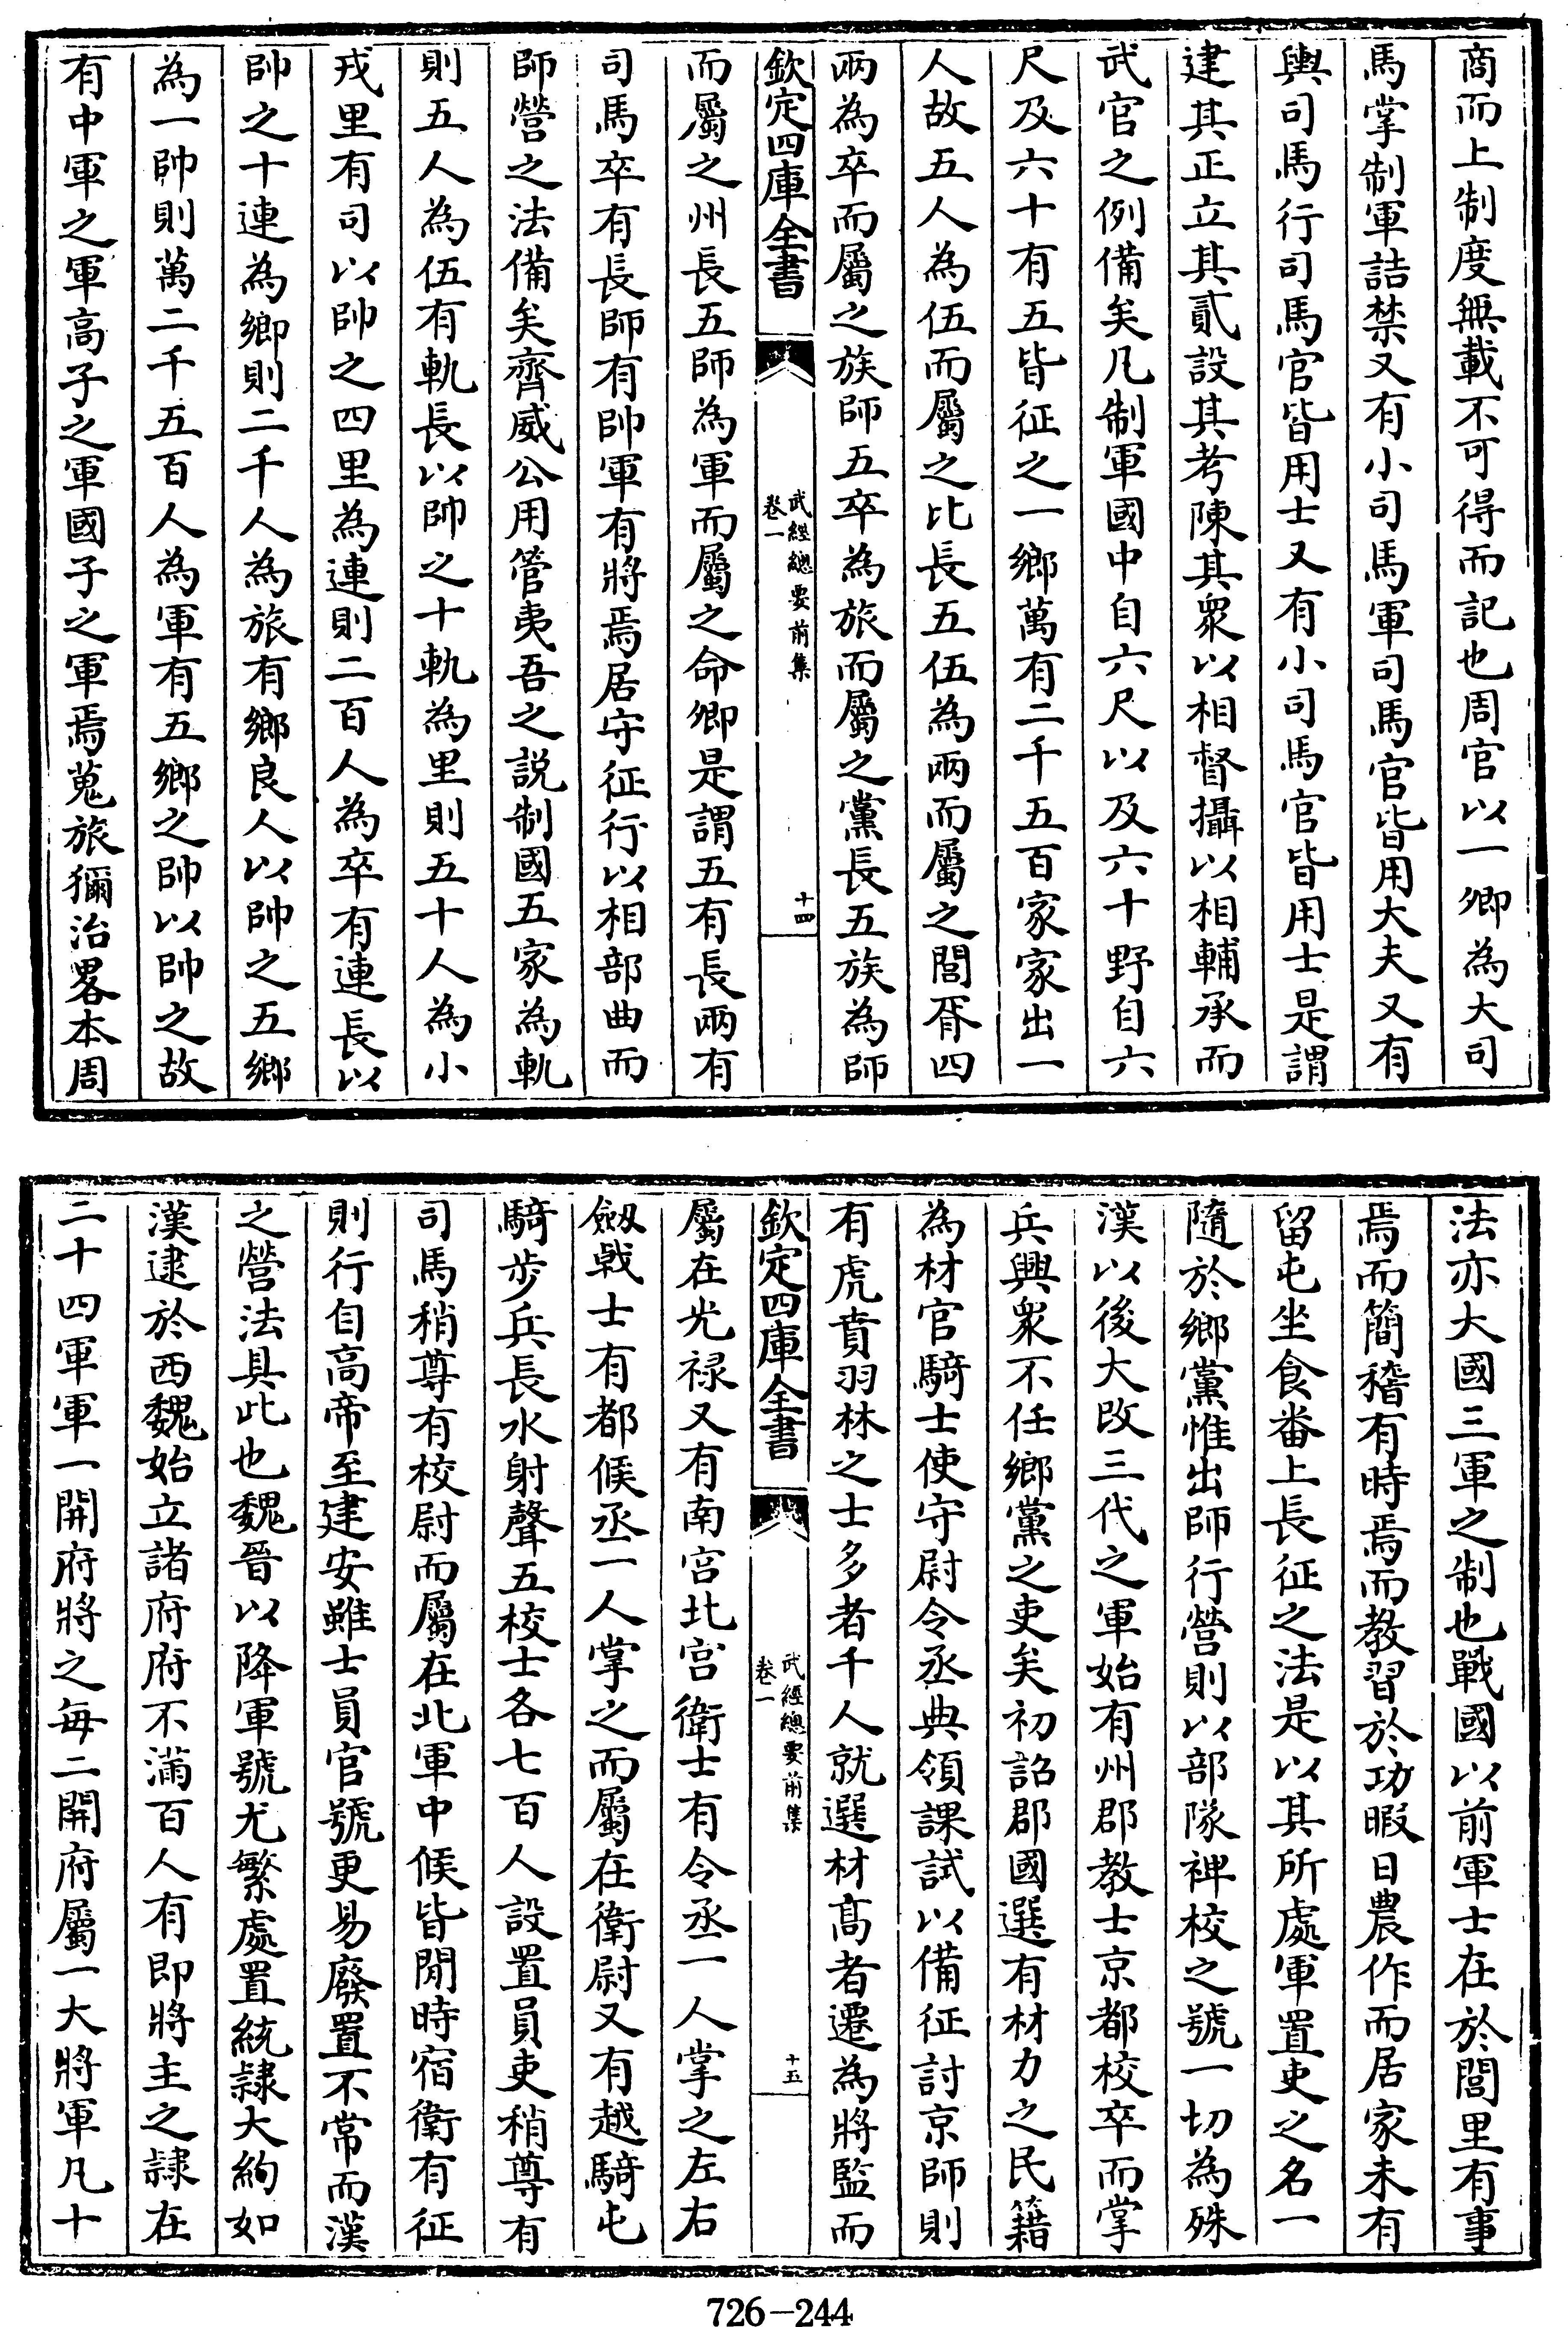 商而上制度無載不可得而記也周官以一卿為大司
馬掌制軍詰禁又有小司馬軍司馬官皆用大夫又有
輿司馬行司馬官皆用士又有小司馬官皆用士是謂
建其正立其貳設其考陳其衆以相督攝以相輔承而
武官之例備矣凡制軍國中自六尺以及六十野自六
尺及六十有五皆征之一鄉萬有二千五百家家出一
人故五人為伍而屬之比長五伍為兩而屬之閭胥四
兩為卒而屬之族師五卒為旅而屬之黨長五族為師
欽定四庫全書
武經總要前集
卷一
十四
而屬之州長五師為軍而屬之命卿是謂五有長兩有
司馬卒有長師有帥軍有將焉居守征行以相部曲而
師營之法備矣齊威公用管夷吾之説制國五家為軌
則五人為伍有軌長以帥之十軌為里則五十人為小
戎里有司以帥之四里為連則二百人為卒有連長以
帥之十連為鄉則二千人為旅有鄉良人以帥之五鄉
為一帥則萬二千五百人為軍有五鄉之帥以帥之故
有中軍之軍高子之軍國子之軍焉蒐旅獮治畧本周
法亦大國三軍之制也戰國以前軍士在於閭里有事
焉而簡稽有時焉而教習於功暇日農作而居家未有
留屯坐食番上長征之法是以其所處軍置吏之名一
隨於鄉黨惟出師行營則以部隊裨校之號一切為殊
漢以後大改三代之軍始有州郡教士京都校卒而掌
兵興衆不任鄉黨之吏矣初詔郡國選有材力之民籍
為材官騎士使守尉令丞典領課試以備征討京師則
有虎賁羽林之士多者千人就選材髙者遷為將監而
欽定四庫全書
武經總要前集
卷一
十五
屬在光禄又有南宫北宫衛士有令丞一人掌之左右
劔戟士有都候丞一人掌之而屬在衛尉又有越騎屯
騎步兵長水射聲五校士各七百人設置員吏稍尊有
司馬稍尊有校尉而屬在北軍中候皆閒時宿衛有征
則行自高帝至建安雖士員官號更易廢置不常而漢
之營法具此也魏晉以降軍號尤繁處置統隷大絢如
漢逮於西魏始立諸府府不滿百人有即將主之隷在
二十四軍軍一開府將之每二開府屬一大將軍凡十
726-244